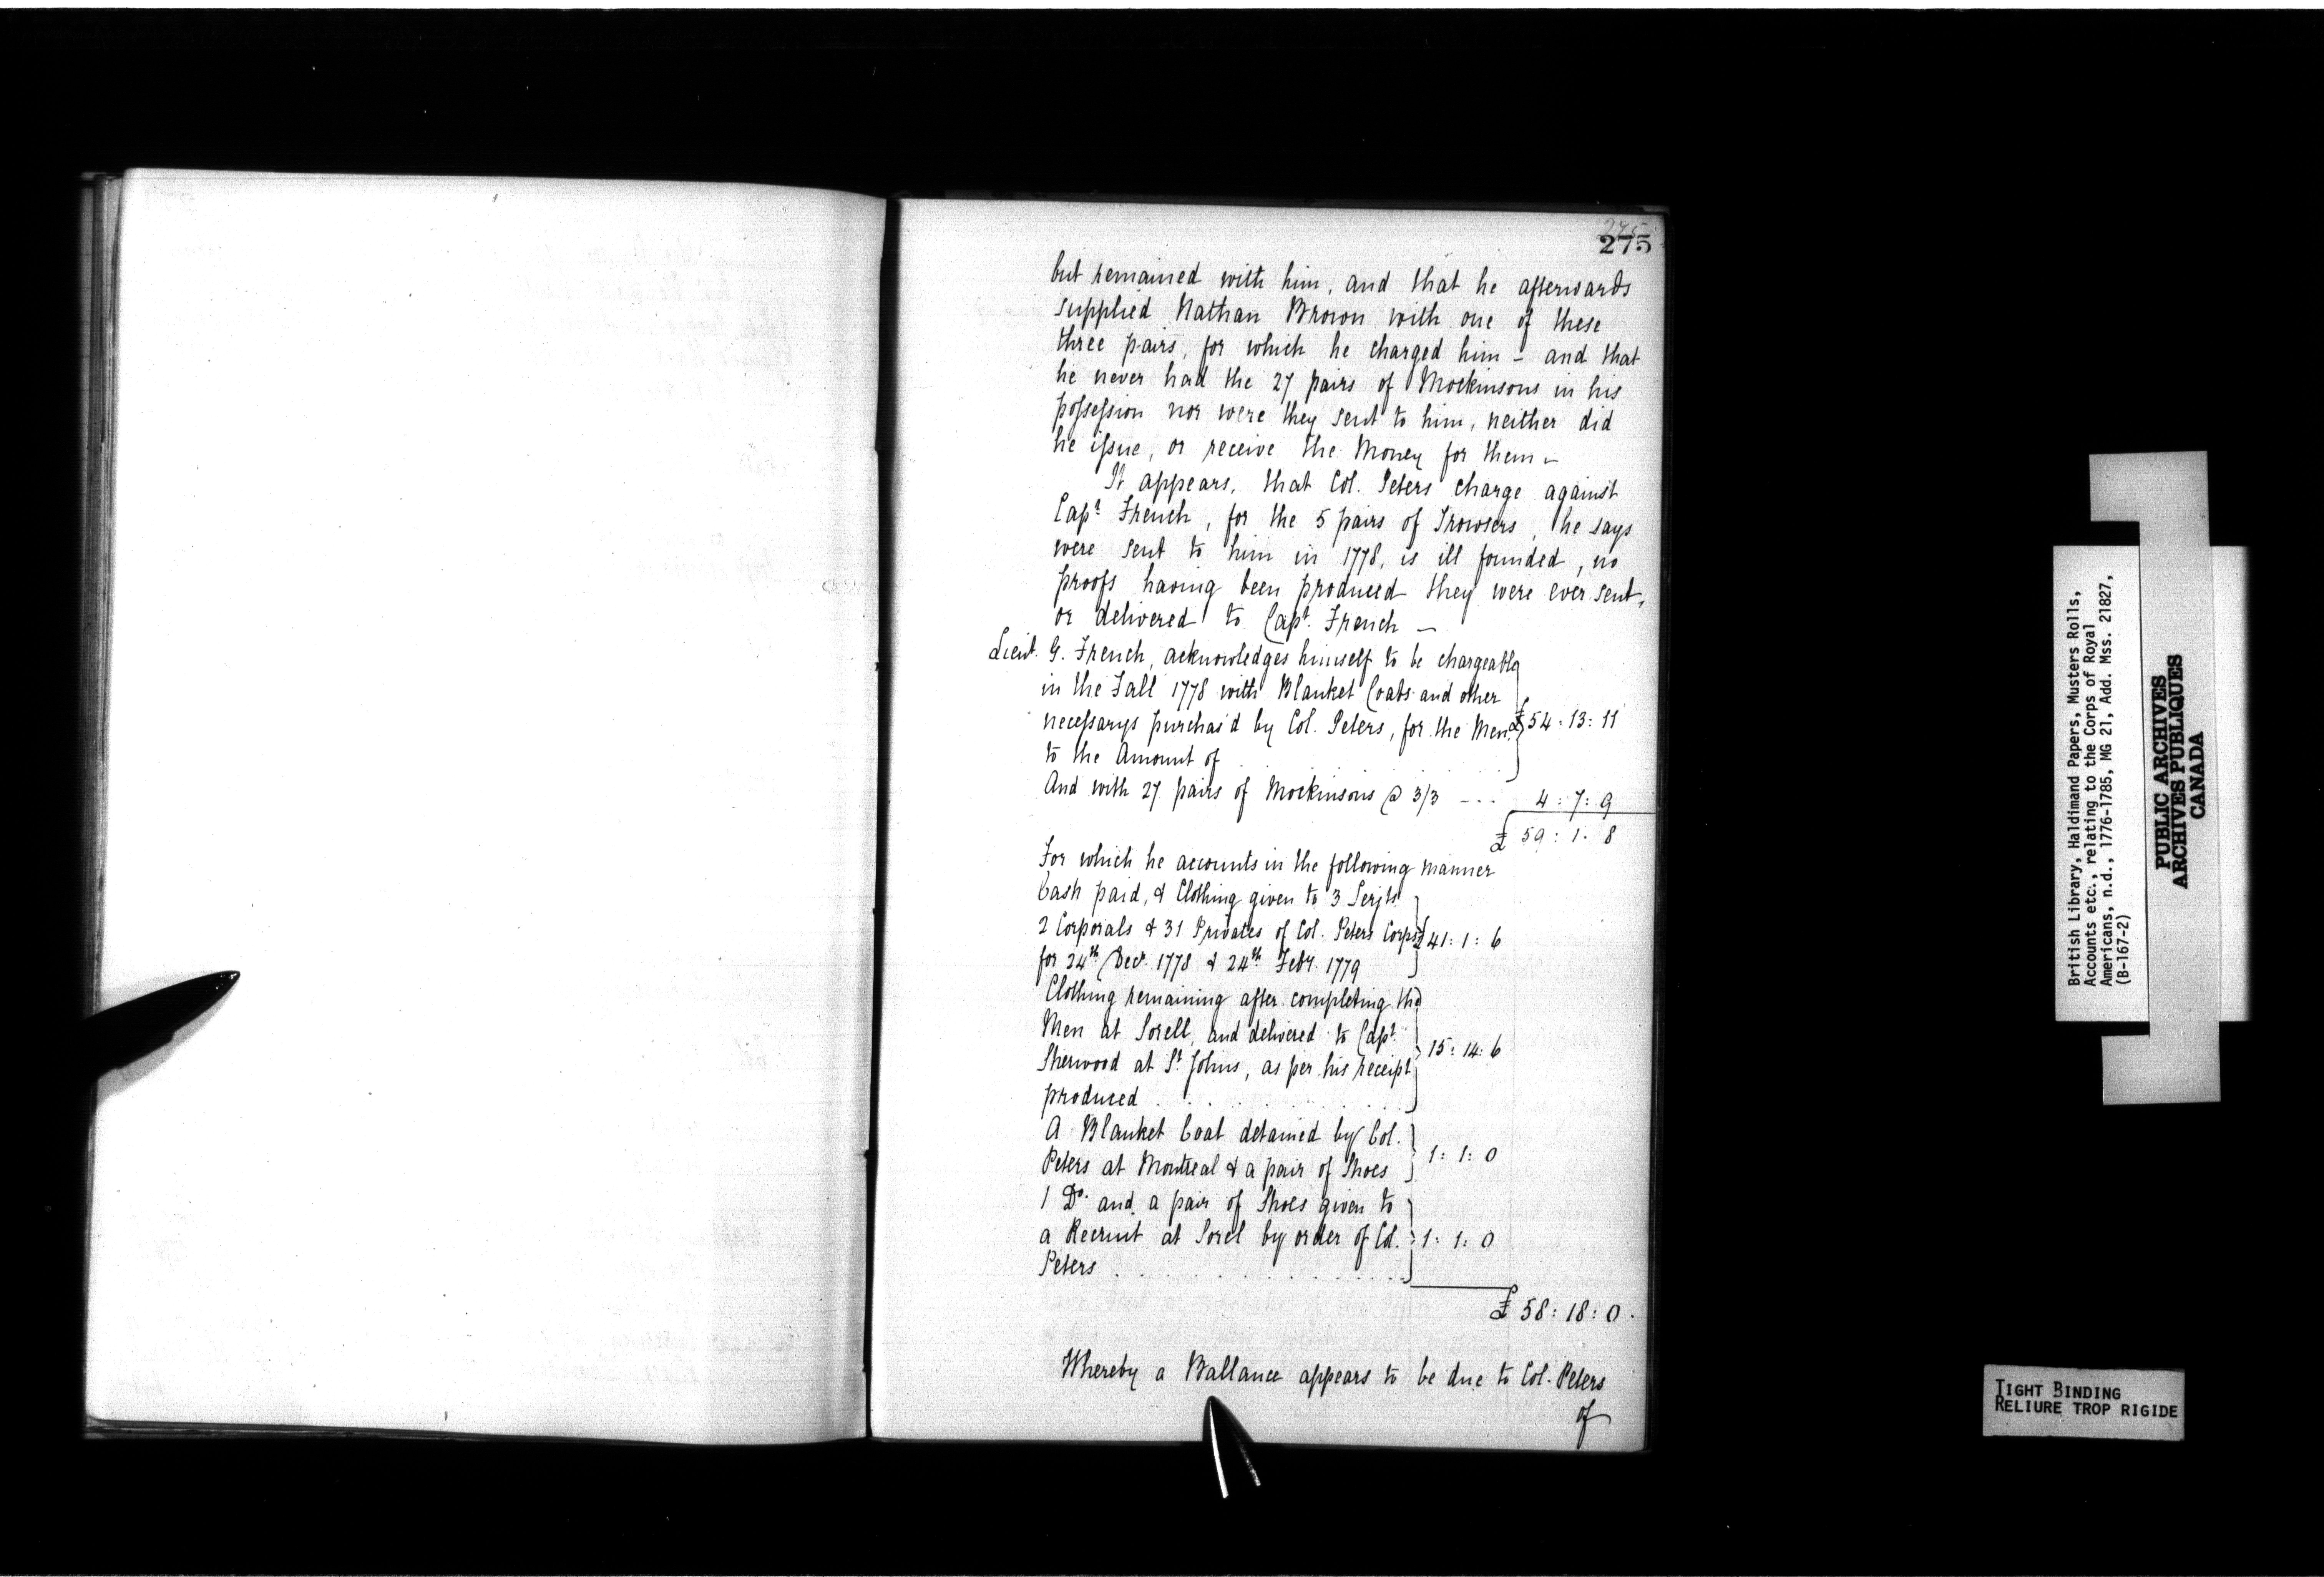 275
275
but remained with him, and that he afterwards
supplied Nathan Brown with one of these
three pairs, for which he charged him – and that
he never had the 27 pairs of Mockinsons in his
possession nor were they sent to him, neither did
he issue, or receive the Money for them –
It appears, that Col. Peters charge against
Capt. French, for the 5 pairs of Trowsers, he says
were sent to him in 1778, is ill founded, no
proofs having been produced they were ever sent,
or delivered to Capt. French –
Lieut. G. French, acknowledges himself to be chargeable
in the Fall 1778 with Blanket Coats and other
necessarys purchas'd by Col. Peters, for the Men
to the Amount of
£54 : 13 : 11
And with 27 pairs of Mockinsons @ 3/3 – . . . 4 : 7 : 9
£ 59 : 1 . 8
For which he accounts in the following manner
Cash paid, & Clothing given to 3 Serjts
2 Corporals & 31 Privates of Col. Peters Corps £41 : 1 : 6
for 24th Decr. 1778 & 24th Febr. 1779
Clothing remaining after completing the
Men at Sorell, and delivered to Capt.
Sherwood at St. Johns, as per his receipt
produced . . . . . . . . . .
15 : 14 : 6
A Blanket Coat detained by Col.
Peters at Montreal & a pair of Shoes
1 : 1 : 0
1 Do. and a pair of Shoes given to
a Recruit at Sorel by order of Col.
Peters . . . . . . . . . . . .
1 : 1 : 0
£ 58 : 18 : 0 .
Whereby a Ballance appears to be due to Col. Peters
of
British Library, Haldimand Papers, Musters Rolls,
Accounts etc., relating to the Corps of Royal
Americans, n.d., 1776-1785, MG 21, Add. Mss. 21827,
(B-167-2)
PUBLIC ARCHIVES
ARCHIVES PUBLIQUES
CANADA
TIGHT BINDING
RELIURE TROP RIGIDE